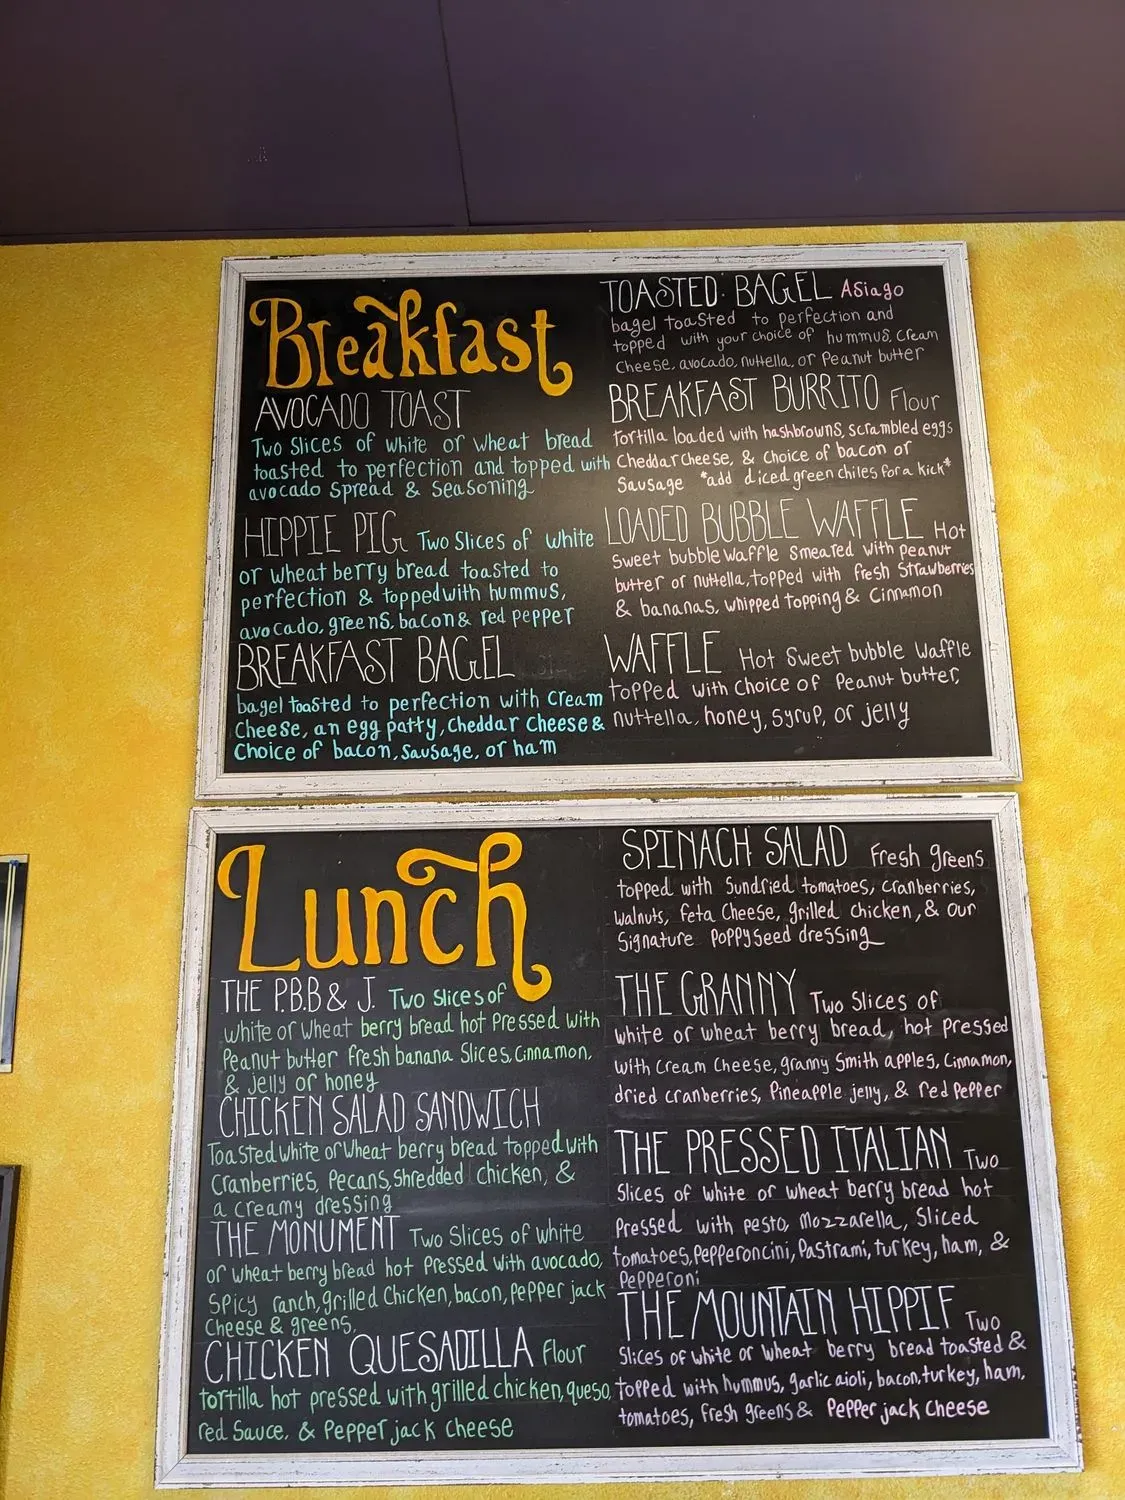 Breakfast
AVOCADO TOAST
Two Slices of white or wheat bread
toasted to perfection and topped with
avocado spread & seasoning
HIPPIE PIG Two Slices of white
or wheat berry bread toasted to
perfection & topped with hummus,
avocado, greens, bacon & red pepper
BREAKFAST BAGEL
bagel toasted to perfection with cream
cheese, an egg patty, cheddar cheese &
choice of bacon, sausage, or ham
TOASTED BAGEL Asiago
bagel toasted to perfection and
topped with your choice of hummus, cream
cheese, avocado, nuttella, or Peanut butter
BREAKFAST BURRITO Flour
tortilla loaded with hashbrowns, scrambled eggs
Cheddar cheese, & choice of bacon or
Sausage *add diced green chiles for a kick*
LOADED BUBBLE WAFFLE Hot
Sweet bubble waffle smeared with peanut
butter or nuttella, topped with fresh strawberries
& bananas, whipped topping & cinnamon
WAFFLE Hot Sweet bubble waffle
topped with choice of Peanut butter,
nuttella, honey, syrup, or jelly
Lunch
THE P.B.B & J. Two slices of
white or wheat berry bread hot pressed with
Peanut butter fresh banana slices, cinnamon,
& jelly or honey
CHICKEN SALAD SANDWICH
Toasted white or wheat berry bread topped with
Cranberries, Pecans, shredded chicken, &
a creamy dressing
THE MONUMENT Two Slices of white
or wheat berry bread hot pressed with avocado,
spicy ranch, grilled chicken, bacon, pepper jack
cheese & greens.
CHICKEN QUESADILLA flour
tortilla hot pressed with grilled chicken, queso,
red sauce, & Pepper jack cheese
SPINACH SALAD Fresh greens
topped with Sundried tomatoes, cranberries,
walnuts, feta cheese, grilled chicken, & our
Signature Poppyseed dressing
THE GRANNY Two Slices of
white or wheat berry bread, hot pressed
with cream cheese, granny smith apples, cinnamon,
dried cranberries, Pineapple jelly, & red pepper
THE PRESSED ITALIAN Two
Slices of white or wheat berry bread hot
pressed with pesto, mozzarella, Sliced
tomatoes, pepperoncini, Pastrami, turkey, ham, &
Pepperoni
THE MOUNTAIN HIPPIE Two
Slices of white or wheat berry bread toasted &
topped with hummus, garlic aioli, bacon, turkey, ham,
tomatoes, fresh greens & Pepper jack cheese